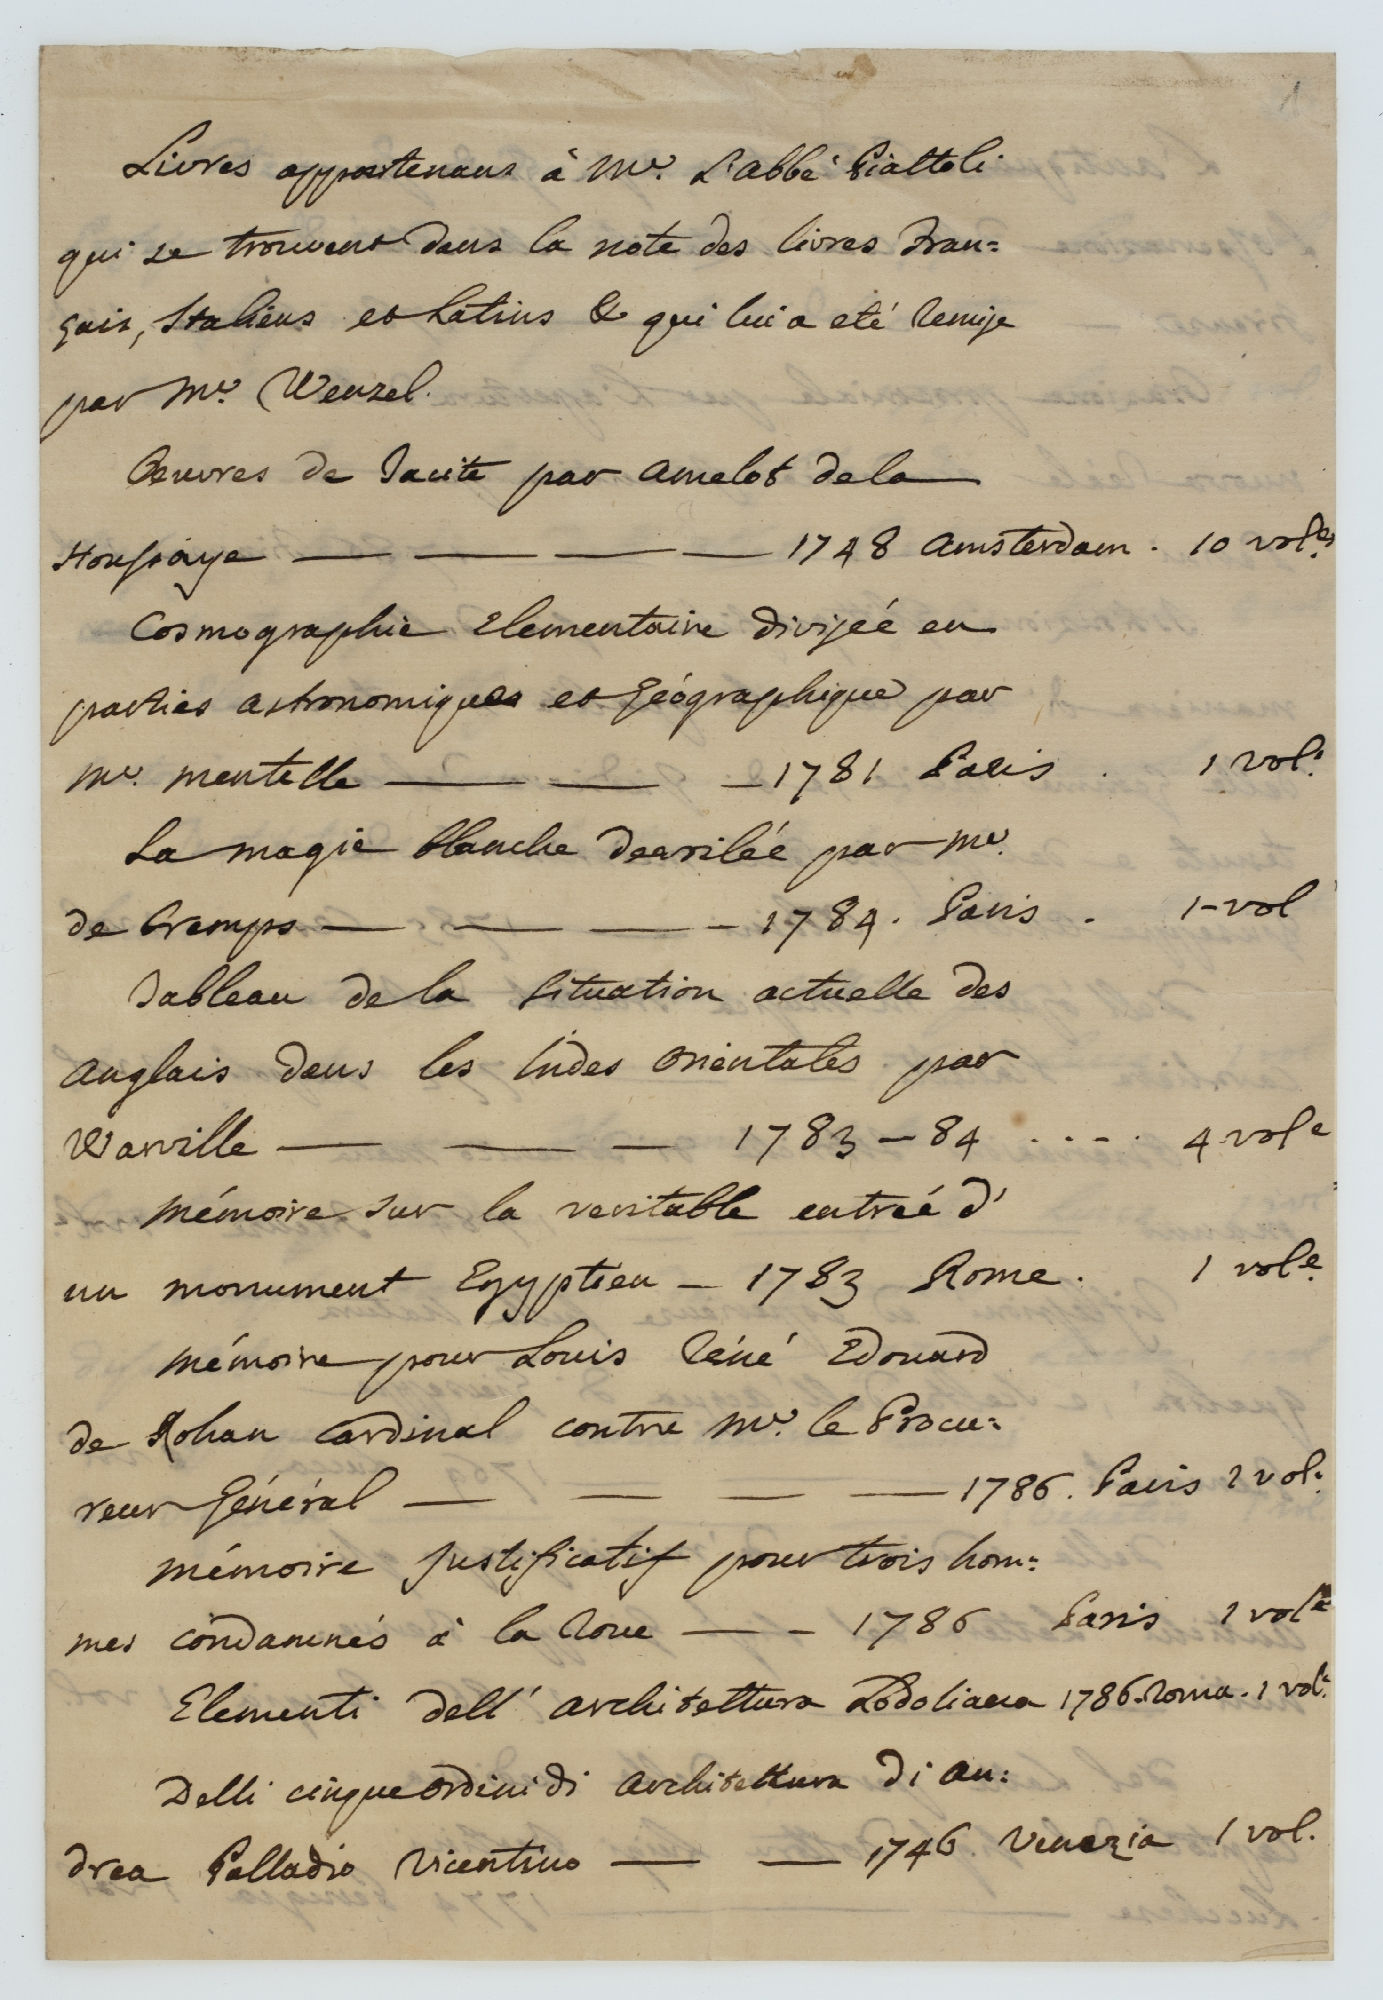 1
Livres appartenans à Mr. L'abbé Piattoli
qui se trouvent dans la note des livres Fran=
çais, Italiens et Latins & qui lui a eté remise
par Mr. Wenzel.
Oeuvres de Tacite par Amelot de la
Houssaye — — — — 1748 Amsterdam. 10 vol.es
Cosmographie Elementaire divisée en
parties astronomiques et Géographique par
Mr. Mentelle — — — 1781 Paris. 1 vol.e
La magie blanche devoilée par Mr.
de Cremps — — — — 1784. Paris. 1 vol
Tableau de la situation actuelle des
Anglais dans les Indes Orientales par
Warville — — — 1783-84 .... 4 vol.e
Mémoire sur la veritable entrée d'
un monument Egyptien — 1783 Rome. 1 vol.e
Mémoire pour Louis Réné Edouard
de Rohan Cardinal contre Mr. le Procu=
reur Général — — — — 1786. Paris 1 vol.e
Mémoire justificatif pour trois hom=
mes condamnés à la roue — — 1786 Paris 1 vol.e
Elementi dell' architettura Lodoliana 1786. Roma. 1 vol.e
Delli cinque ordini di architettura di An=
drea Palladio Vicentino — — 1746 Venezia 1 vol.